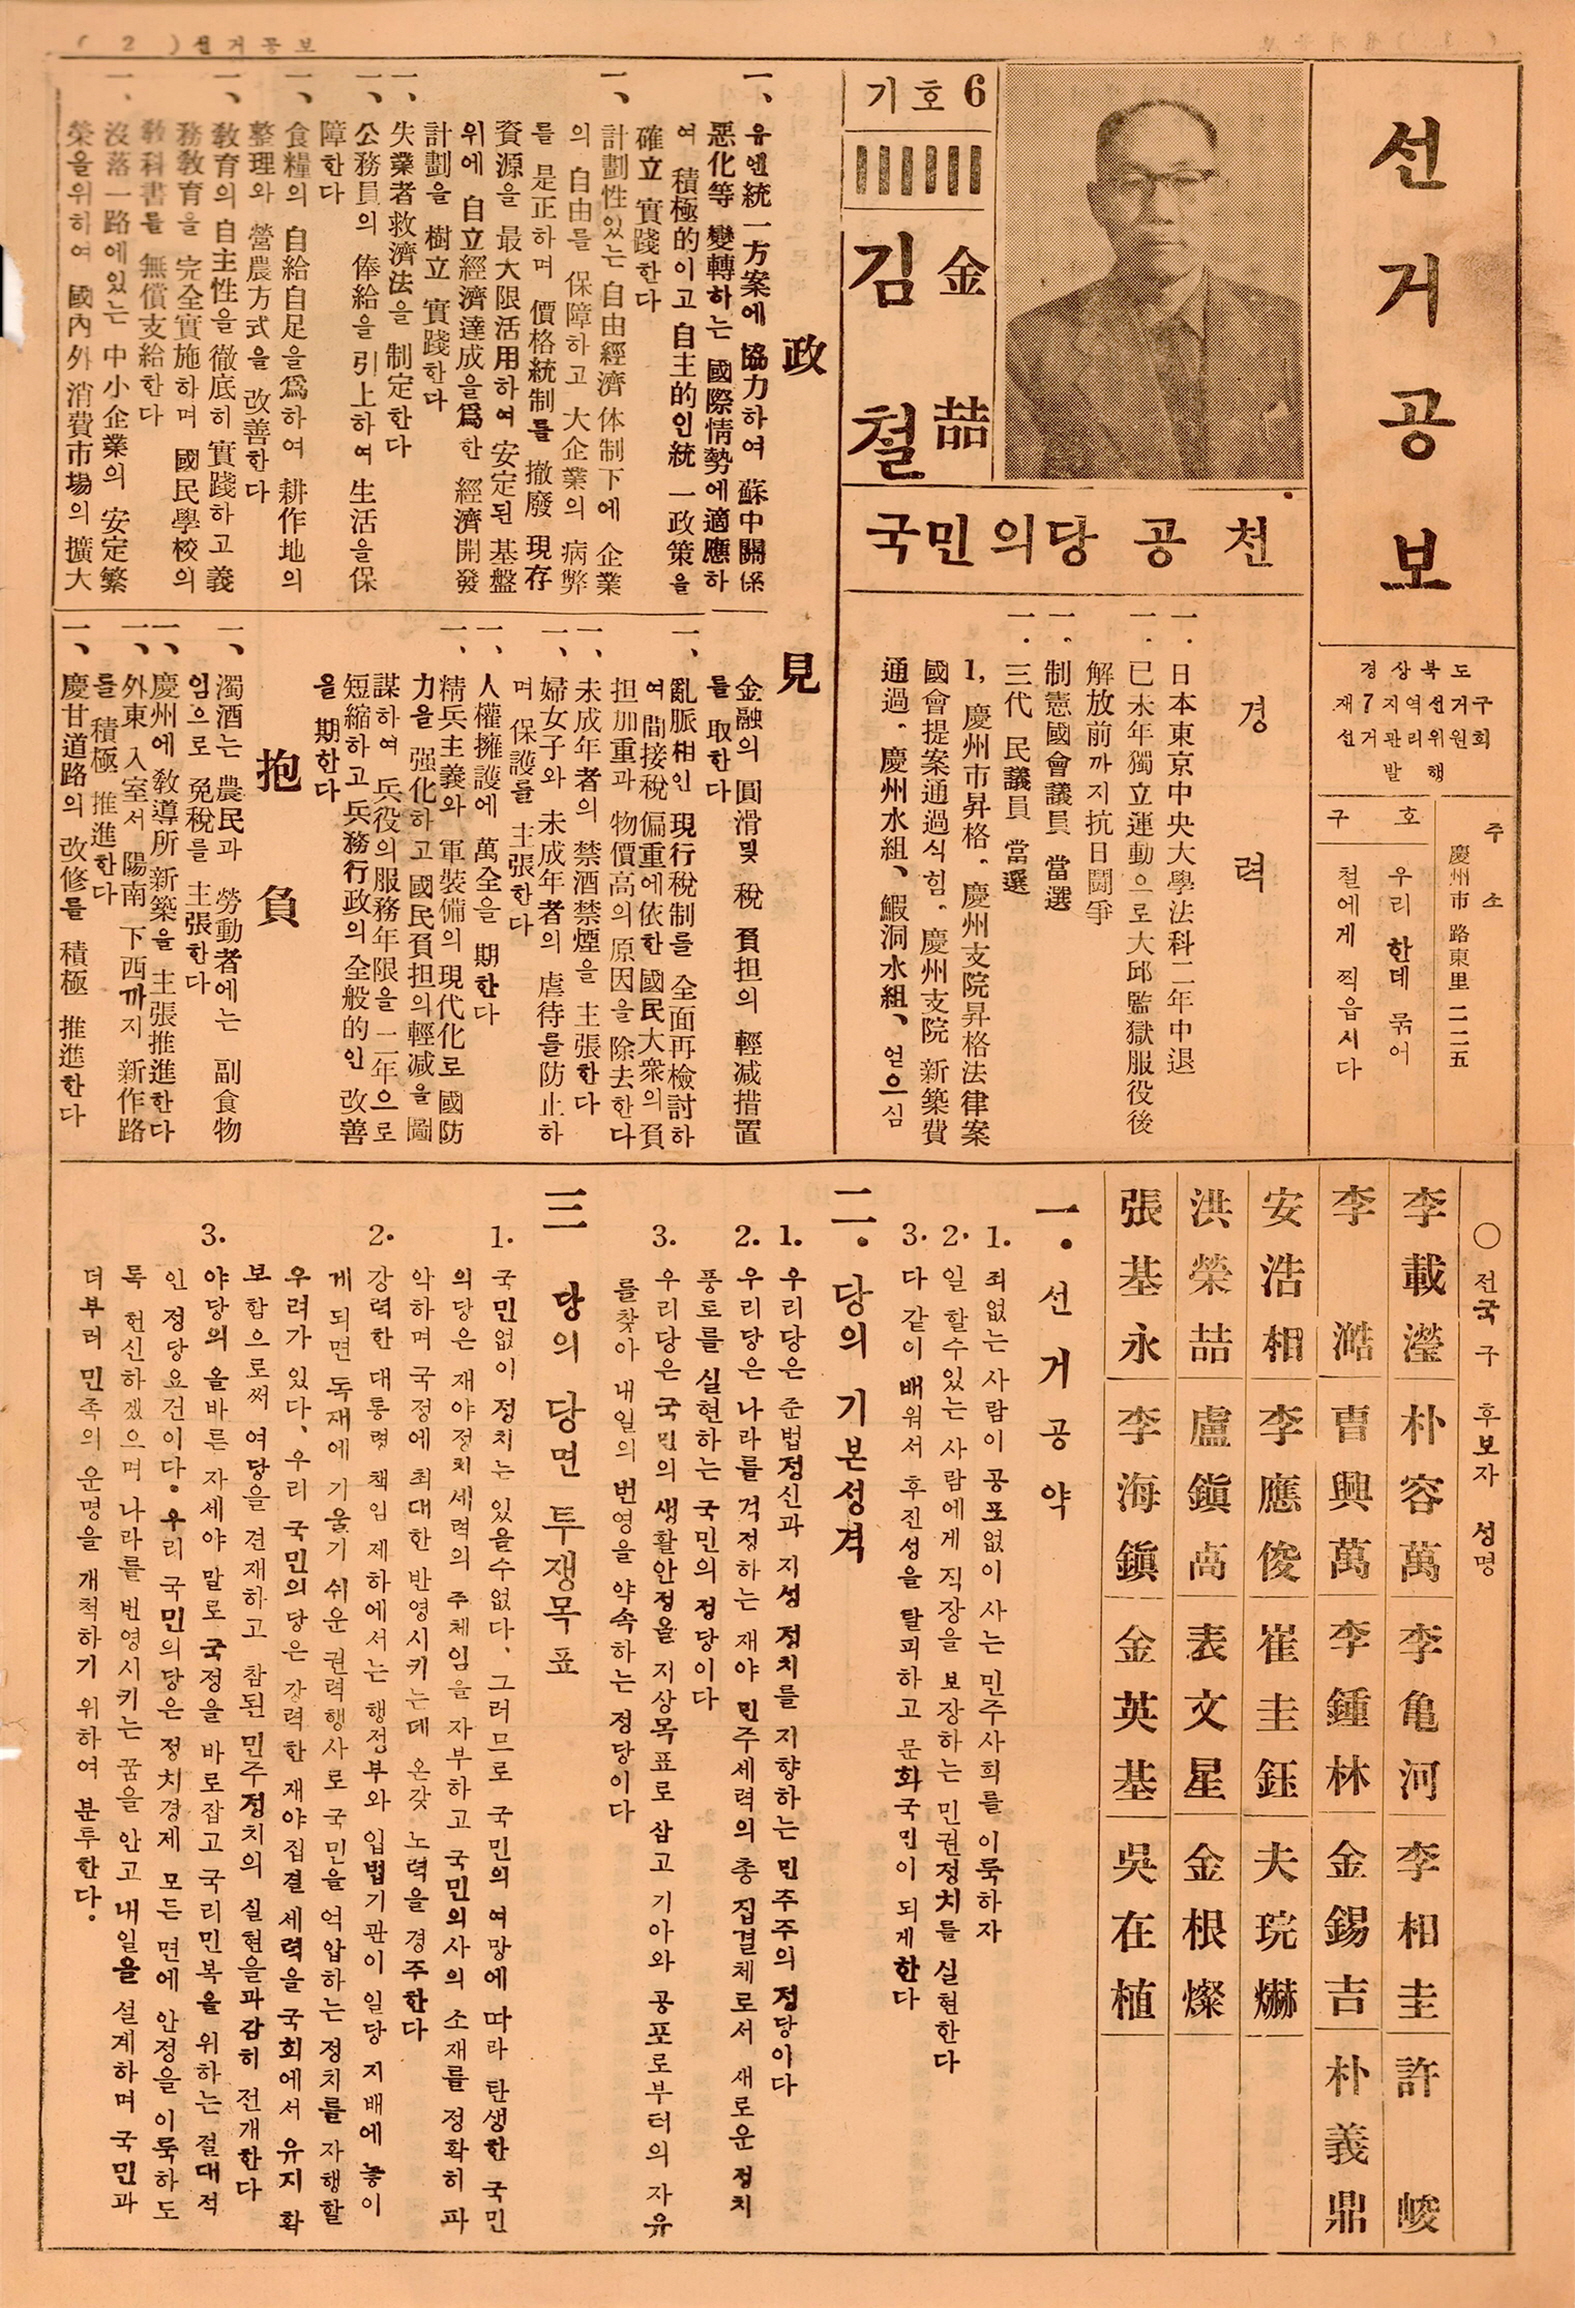 ( 2 ) 선거공보
선거공보
경상북도
재7지역선거구
선거관리위원회
발행
주소
慶州市 路東里 二二五
구호
우리 한데 묶어
철에게 찍읍시다
기호 6
金喆
김철
국민의당 공천
경력
一. 日本東京中央大學法科二年中退
一. 已未年獨立運動으로 大邱監獄服役後
解放前까지抗日鬪爭
一. 制憲國會議員 當選
一. 三代 民議員 當選
1, 慶州市昇格. 慶州支院昇格法律案
國會提案通過식힘. 慶州支院 新築費
通過. 慶州水組、鰕洞水組、얻으심
政見
一、유엔統一方案에 協力하여 蘇中關係
惡化等 變轉하는 國際情勢에適應하
여 積極的이고 自主的인統一政策을
確立 實踐한다
一、計劃性있는 自由經濟体制下에 企業
의 自由를 保障하고 大企業의 病弊
를 是正하며 價格統制를 撤廢 現存
資源을 最大限活用하여 安定된 基盤
위에 自立經濟達成을爲한 經濟開發
計劃을 樹立 實踐한다
一、失業者救濟法을 制定한다
一、公務員의 俸給을 引上하여 生活을保
障한다
一、食糧의 自給自足을爲하여 耕作地의
整理와 營農方式을 改善한다
一、敎育의 自主性을徹底히 實踐하고 義
務敎育을 完全實施하며 國民學校의
敎科書를 無償支給한다
一、沒落一路에있는 中小企業의 安定繁
榮을위하여 國內外消費市場의 擴大
金融의 圓滑및 稅 負担의 輕減措置
를 取한다
一、亂脈相인 現行稅制를 全面再檢討하
여 間接稅偏重에依한國民大衆의負
担加重과 物價高의原因을除去한다
一、未成年者의 禁酒禁煙을 主張한다
一、婦女子와 未成年者의 虐待를防止하
며 保護를 主張한다
一、人權擁護에 萬全을 期한다
一、精兵主義와 軍裝備의現代化로國防
力을 强化하고 國民負担의輕減을圖
謀하여 兵役의服務年限을 二年으로
短縮하고 兵務行政의全般的인 改善
을 期한다
抱負
一、濁酒는 農民과 勞動者에는 副食物
임으로 免稅를 主張한다
一、慶州에 敎導所新築을主張推進한다
一、外東 入室서 陽南 下西까지 新作路
를 積極 推進한다
一、慶甘道路의 改修를 積極 推進한다
○ 전국구 후보자 성명
李載瀅 朴容萬 李亀河 李相圭 許 峻
李 澔 曺興萬 李鍾林 金錫吉 朴義鼎
安浩相 李應俊 崔圭鈺 夫琓爀
洪榮喆 盧鎭卨 表文星 金根燦
張基永 李海鎭 金英基 吳在植
一. 선거공약
1. 죄없는 사람이 공포없이 사는 민주사회를 이룩하자
2. 일 할수있는 사람에게 직장을 보장하는 민권정치를 실현한다
3. 다 같이 배워서 후진성을 탈피하고 문화국민이 되게한다
二. 당의 기본성격
1. 우리당은 준법정신과 지성 정치를 지향하는 민주주의 정당이다
2. 우리당은 나라를 걱정하는 재야 민주세력의 총 집결체로서 새로운 정치
풍토를 실현하는 국민의 정당이다
3. 우리당은 국민의 생활안정을 지상목표로 삼고 기아와 공포로부터의 자유
를찾아 내일의 번영을 약속하는 정당이다
三 당의 당면 투쟁목표
1. 국민없이 정치는 있을수없다. 그러므로 국민의 여망에 따라 탄생한 국민
의당은 재야정치세력의 주체임을 자부하고 국민의사의 소재를 정확히 파
악하며 국정에 최대한 반영시키는데 온갖 노력을 경주한다
2. 강력한 대통령 책임 제하에서는 행정부와 입법기관이 일당 지배에 놓이
게 되면 독재에 기울기 쉬운 권력행사로 국민을 억압하는 정치를 자행할
우려가 있다. 우리 국민의당은 강력한 재야집결 세력을 국회에서 유지 확
보함으로써 여당을 견재하고 참된 민주정치의 실현을과감히 전개한다
3. 야당의 올바른 자세야 말로 국정을 바로잡고 국리민복을 위하는 절대적
인 정당요건이다. 우리 국민의당은 정치경제 모든 면에 안정을 이룩하도
록 헌신하겠으며 나라를 번영시키는 꿈을 안고 내일을 설계하며 국민과
더부러 민족의 운명을 개척하기 위하여 분투한다.